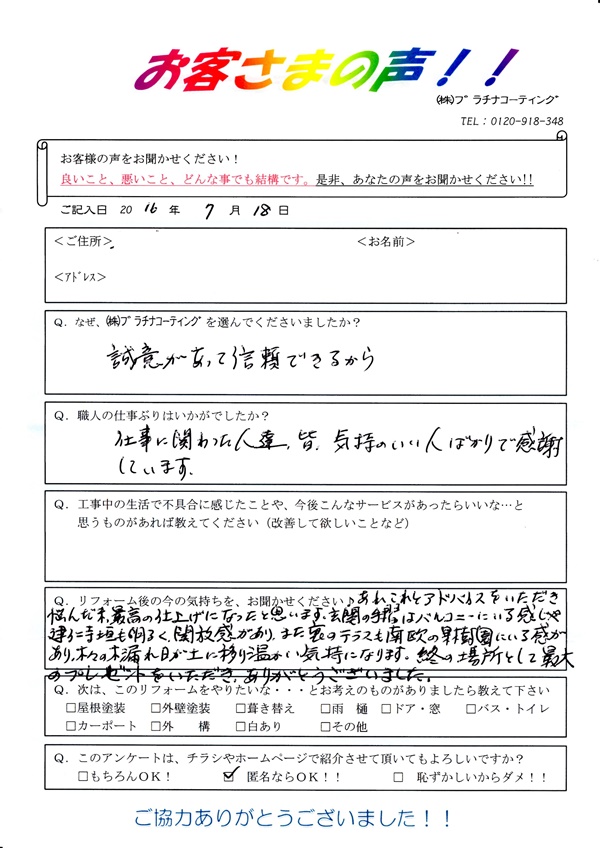 お客さまの声！！
㈱プラチナコーティング
TEL：0120-918-348
お客様の声をお聞かせください！
良いこと、悪いこと、どんな事でも結構です。是非、あなたの声をお聞かせください!!
ご記入日 2016年 7月18日
＜ご住所＞ ＜お名前＞
＜アドレス＞
Q．なぜ、㈱プラチナコーティングを選んでくださいましたか？
誠意があって信頼できるから
Q．職人の仕事ぶりはいかがでしたか？
仕事に関わった人達、皆、気持のいい人ばかりで感謝
しています。
Q．工事中の生活で不具合に感じたことや、今後こんなサービスがあったらいいな…と
思うものがあれば教えてください（改善して欲しいことなど）
Q．リフォーム後の今の気持ちを、お聞かせください♪ あれこれとアドバイスをいただき
悩んだ末、最高の仕上げになったと思います。玄関の はバルコニーにいる感じや
手垣も明るく、開放感があり、また裏のテラスも南欧の果樹園にいる感が
あり、木々の木漏れ日が土に移り温かい気持になります。終の場所として最大
のプレゼントをいただき、ありがとうございました。
Q．次は、このリフォームをやりたいな・・・とお考えのものがありましたら教えて下さい
□屋根塗装 □外壁塗装 □葺き替え □雨 樋 □ドア・窓 □バス・トイレ
□カーポート □外 構 □白あり □その他
Q．このアンケートは、チラシやホームページで紹介させて頂いてもよろしいですか？
□もちろんOK！ ☑ 匿名ならOK！！ □ 恥ずかしいからダメ！！
ご協力ありがとうございました！！